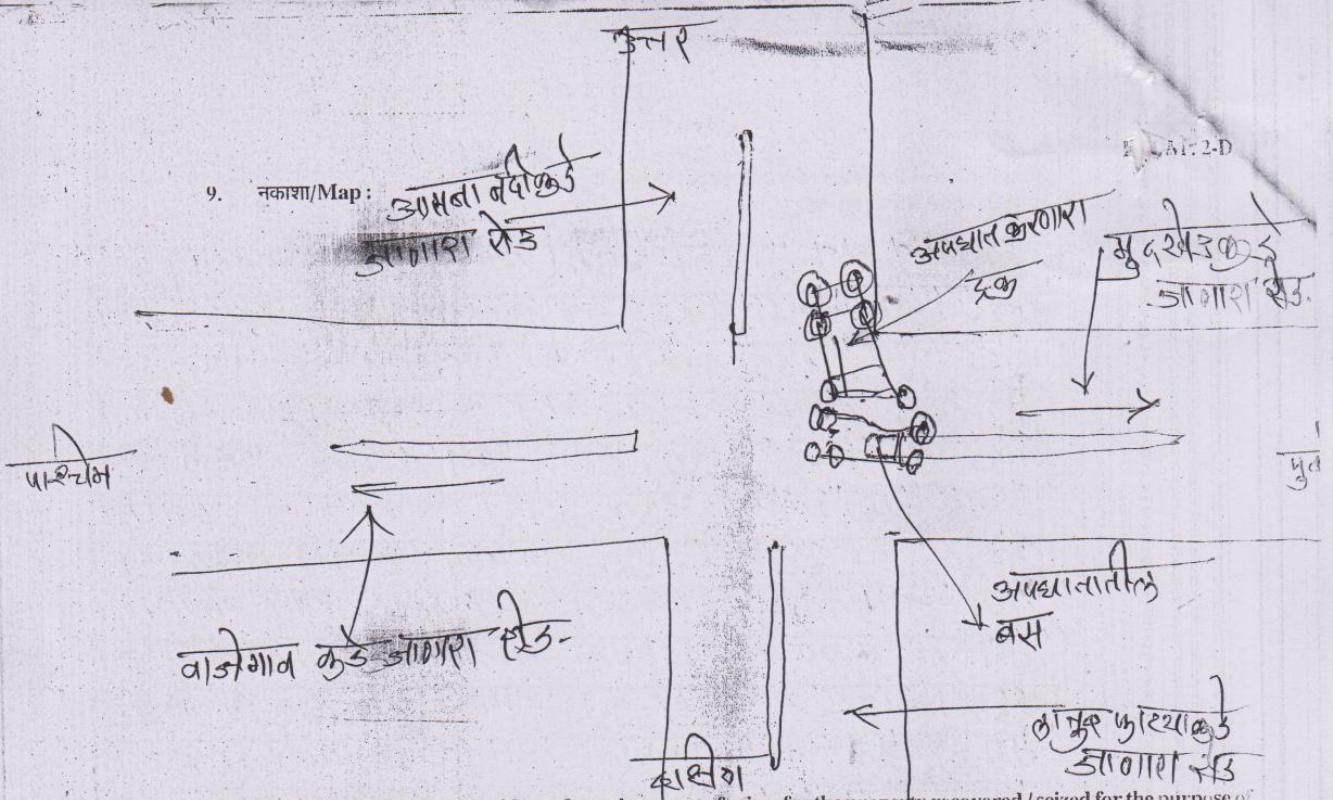 उत्तर
2-D
9. नकाशा/Map : आसना नदीकडे
जाणारा रोड
अपघात करणारा
ट्रक
मुदखेडकडे
जाणारा रोड.
पश्चिम
पुर्व
अपघातातील
बस
वाजेगाव कडे जाणारा रोड-
लातुर फाटयाकडे
जाणारा रोड
दक्षीण
for the property recovered / seized for the purpose of